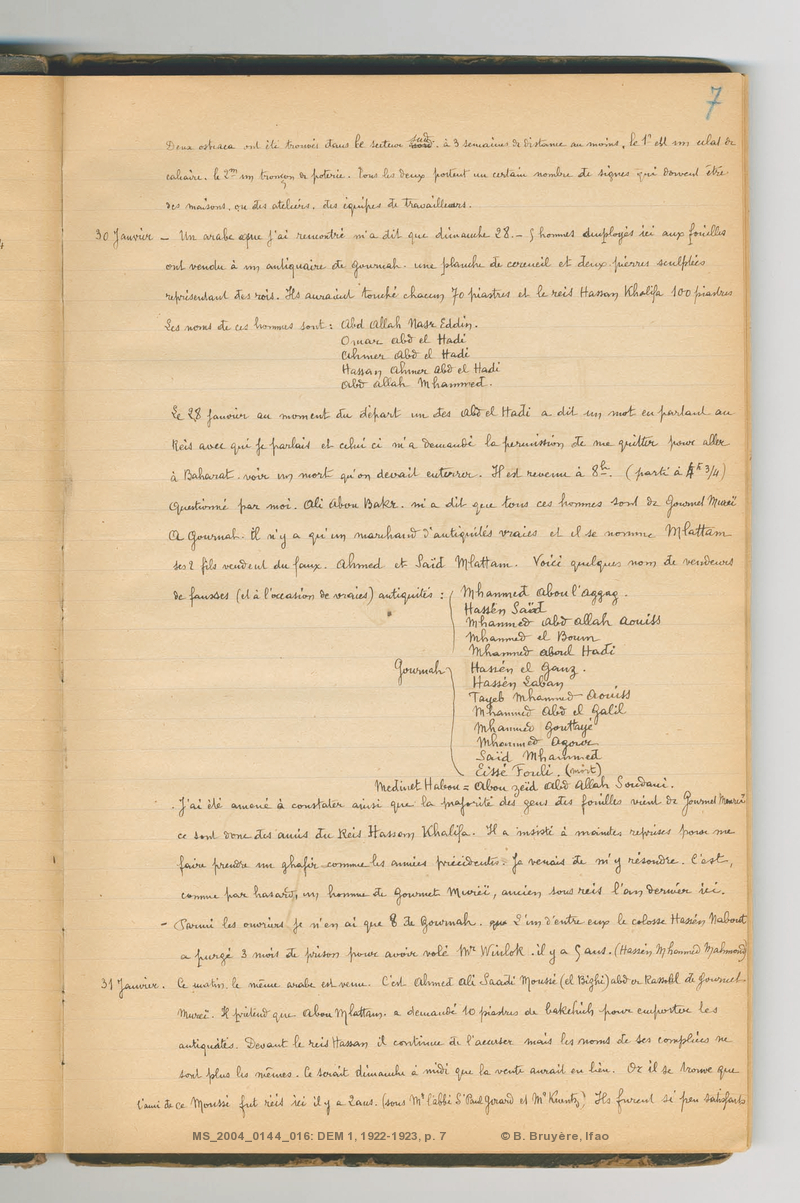 7
Deux ostraca ont été trouvés dans le secteur sud. à 3 semaines de distance au moins, le 1er est un éclat de
calcaire. le 2me un tronçon de poterie. Tous les deux portent un certain nombre de signes qui doivent être
des maisons, ou des ateliers, des équipes de travailleurs.
30 Janvier – Un arabe que j'ai rencontré m'a dit que dimanche 28. – 5 hommes employés ici aux fouilles
ont vendu à un antiquaire de Gournah. une planche de cercueil et deux pierres sculptées
représentant des rois. Ils auraient touché chacun 70 piastres et le reis Hassan Khalifa 100 piastres
Les noms de ces hommes sont : Abd Allah Nasr Eddin.
Omar abd el Hadi
Ahmer Abd el Hadi
Hassan Ahmer Abd el Hadi
Abd Allah Mhammed.
Le 28 Janvier au moment du départ un des Abd el Hadi a dit un mot en partant au
Reis avec qui je parlais et celui ci m'a demandé la permission de me quitter pour aller
à Baharat. voir un mort qu'on devait enterrer. Il est revenu à 8h. (parti à 4h 3/4)
Questionné par moi. Ali Abou Bakr. m'a dit que tous ces hommes sont de Gournet Mureï
A Gournah. il n'y a qu'un marchand d'antiquités vraies et il se nomme Mlattam
ses 2 fils vendent du faux. Ahmed et Saïd Mlattam. Voici quelques nom de vendeurs
de fausses (et à l'occasion de vraies) antiquités : Mhammed Aboul'Aggag.
Hassén Saïd
Mhammed Abd Allah Aouiss
Mhammed el Boum
Mhammed Aboul Hadi
Gournah Hassén el Ganz.
Hassén Laban
Tayeb Mhammed Aouiss
Mhammed Abd el Galil
Mhammed Gouttayé
Mhammed Agour
Saïd Mhammed
Eissé Fouli. (mort)
Medinet Habou = Abou zeïd Abd Allah Soudani.
J'ai été amené à constater ainsi que la majorité des gens des fouilles vient de Gournet Mureï
ce sont donc des amis du Reis Hassan Khalifa. Il a insisté à maintes reprises pour me
faire prendre un ghafir comme les années précédentes. Je venais de m'y résoudre. C'est,
comme par hasard, un homme de Gournet Mureï, ancien sous reis l'an dernier ici.
– Parmi les ouvriers je n'en ai que 8 de Gournah. L'un d'entre eux le colosse Hassén Nabout
a purgé 3 mois de prison pour avoir volé Mr Winlok. il y a 5 ans. (Hassén Mhammed Mahmoud)
31 Janvier. Ce matin le même arabe est venu. C'est Ahmed Ali Saadi Moussé (el Bighi) abd er Rassoul de Gournet
Mureï. Il prétend que Abou Mlattam. a demandé 10 piastres de bakchich pour emporter les
antiquités. Devant le reis Hassan il continue de l'accuser mais les noms de ses complices ne
sont plus les mêmes. Ce serait dimanche à midi que la vente aurait eu lieu. Or il se trouve que
l'ami de ce Moussé fut reis ici il y a 2 ans. (sous Mr l'abbé St Paul Girard et Mr Kuentz) Ils furent si peu satisfaits
MS_2004_0144_016: DEM 1, 1922-1923, p. 7 © B. Bruyère, Ifao